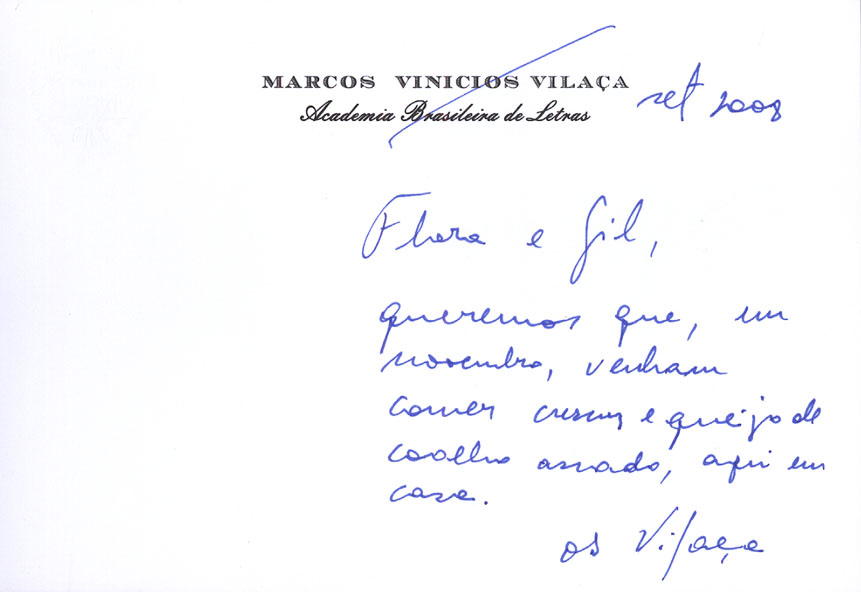 MARCOS VINICIOS VILAÇA
Academia Brasileira de Letras
set 2008
Flora e Gil,
queremos que, em
novembro, venham
comer e queijo de
coalho assado, aqui em
casa.
os Vilaça